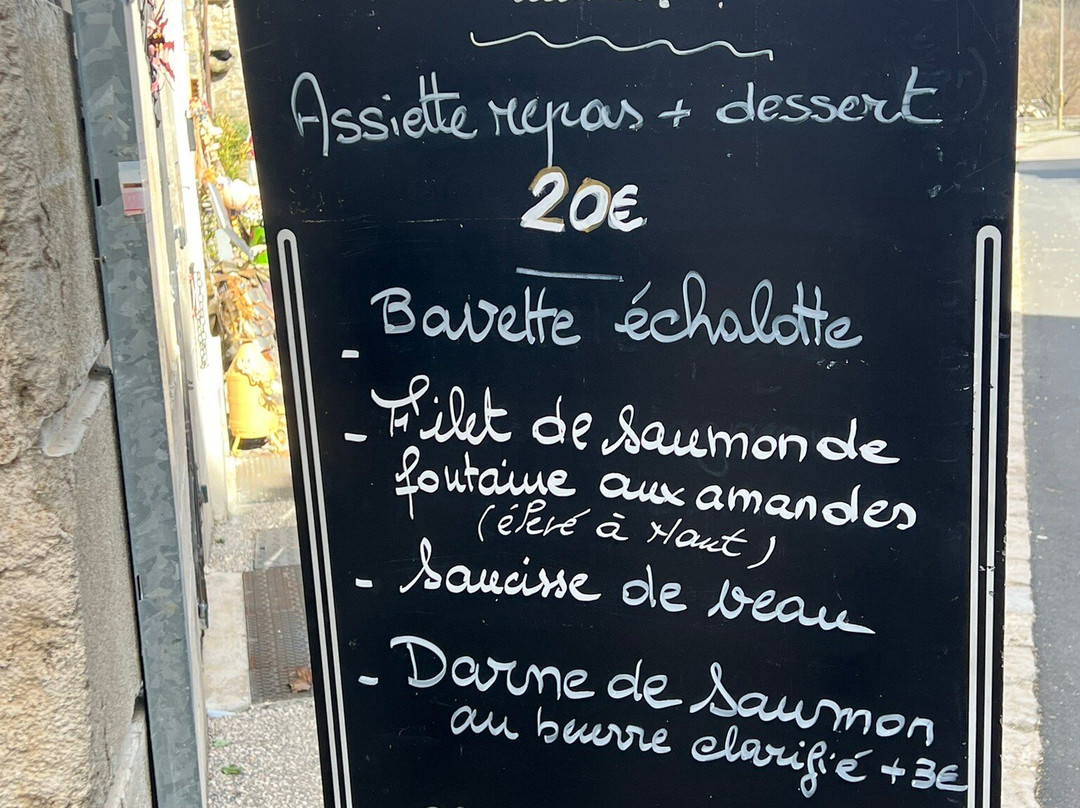 Assiette repas + dessert
20€
- Bavette échalotte
- Filet de saumon de
fontaine aux amandes
(élevé à Haut)
- Saucisse de veau
- Darne de saumon
au beurre clarifié +3€